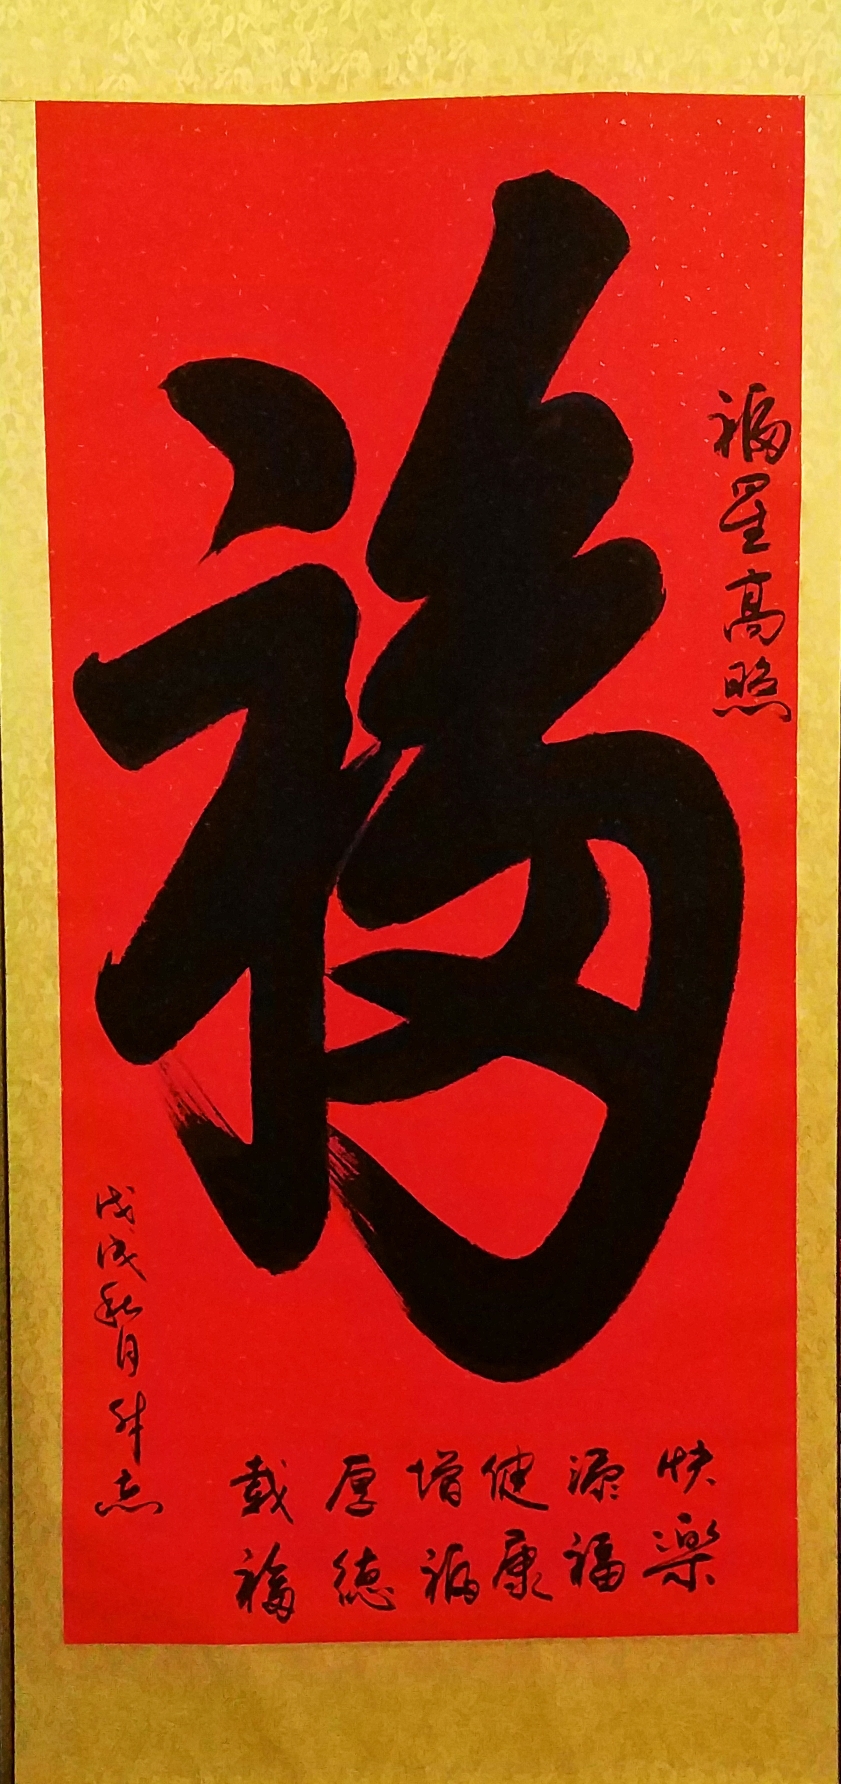 福星高照
福
快樂
源福
健康
增福
厚德
載福
戊戌秋月